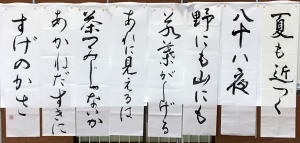 夏も近づく
八十八夜
野にも山にも
若葉がしげる
あれに見えるは
茶つみじゃないか
あかねだすきに
すげのかさ